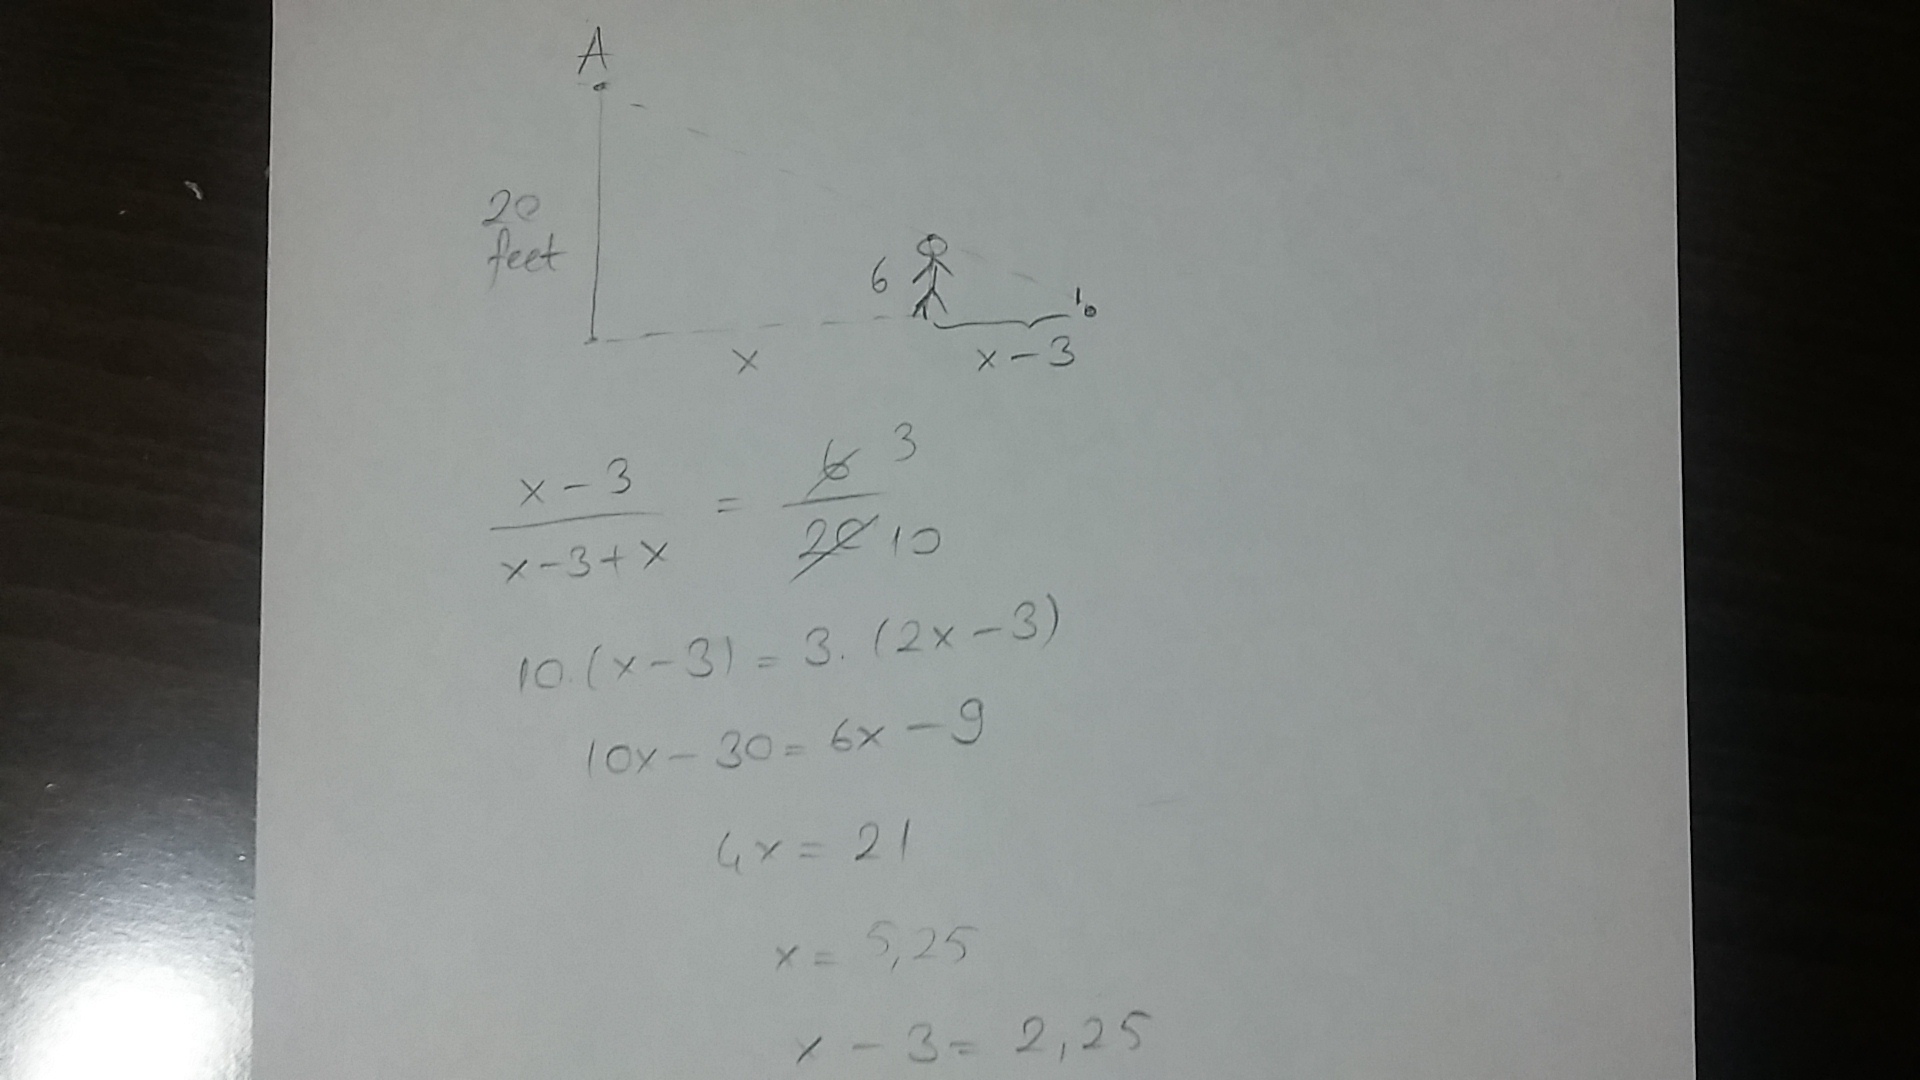 A
20
feet
6
x
x-3
x-3 / x-3+x = 6 3 / 20 10
10.(x-3) = 3.(2x-3)
10x-30 = 6x-9
4x = 21
x = 5,25
x-3 = 2,25